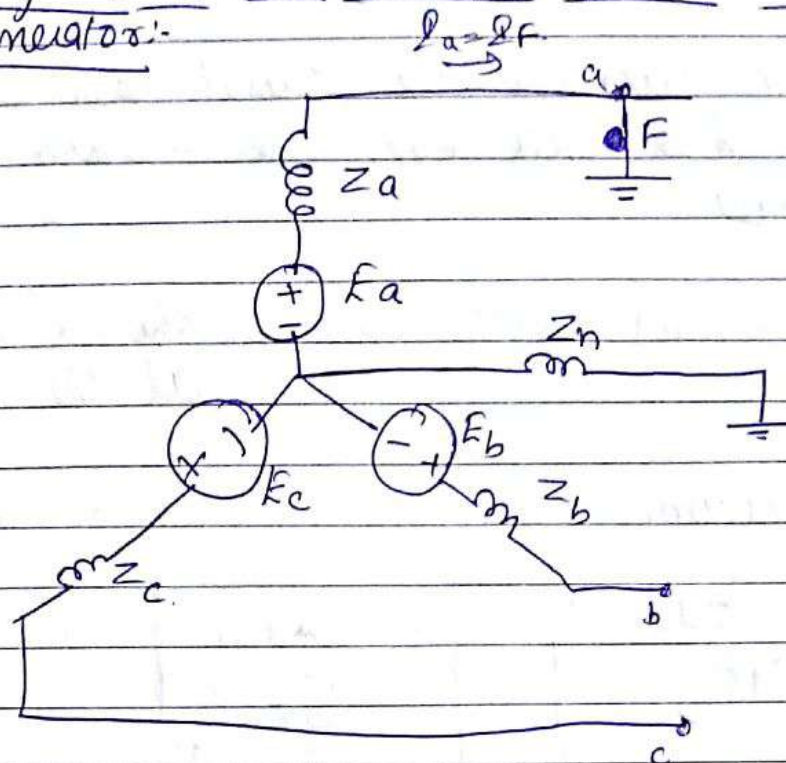 nerator:-
Ia = IF.
a
F
Za
+
-
Ea
Zn
-
+
Eb
Zb
+
-
Ec
Zc.
b
c